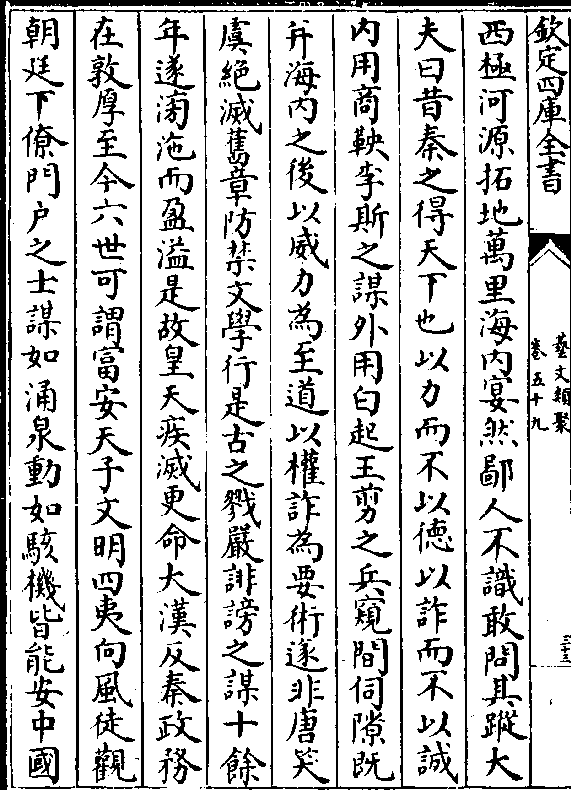 欽定四庫全書
藝文類聚
卷五十九
三十三
西極河源拓地萬里海内宴然鄙人不識敢問其蹤大
夫曰昔秦之得天下也以力而不以德以詐而不以誠
内用商鞅李斯之謀外用白起王剪之兵窺間伺隙既
并海内之後以威力為至道以權詐為要術遂非唐笑
虞絶滅舊章防禁文學行是古之戮嚴誹謗之謀十餘
年遂滂沲而盈溢是故皇天疾滅更命大漢反秦政務
在敦厚至今六世可謂富安天子文明四夷向風徒觀
朝廷下僚門户之士謀如涌泉動如駭機皆能安中國